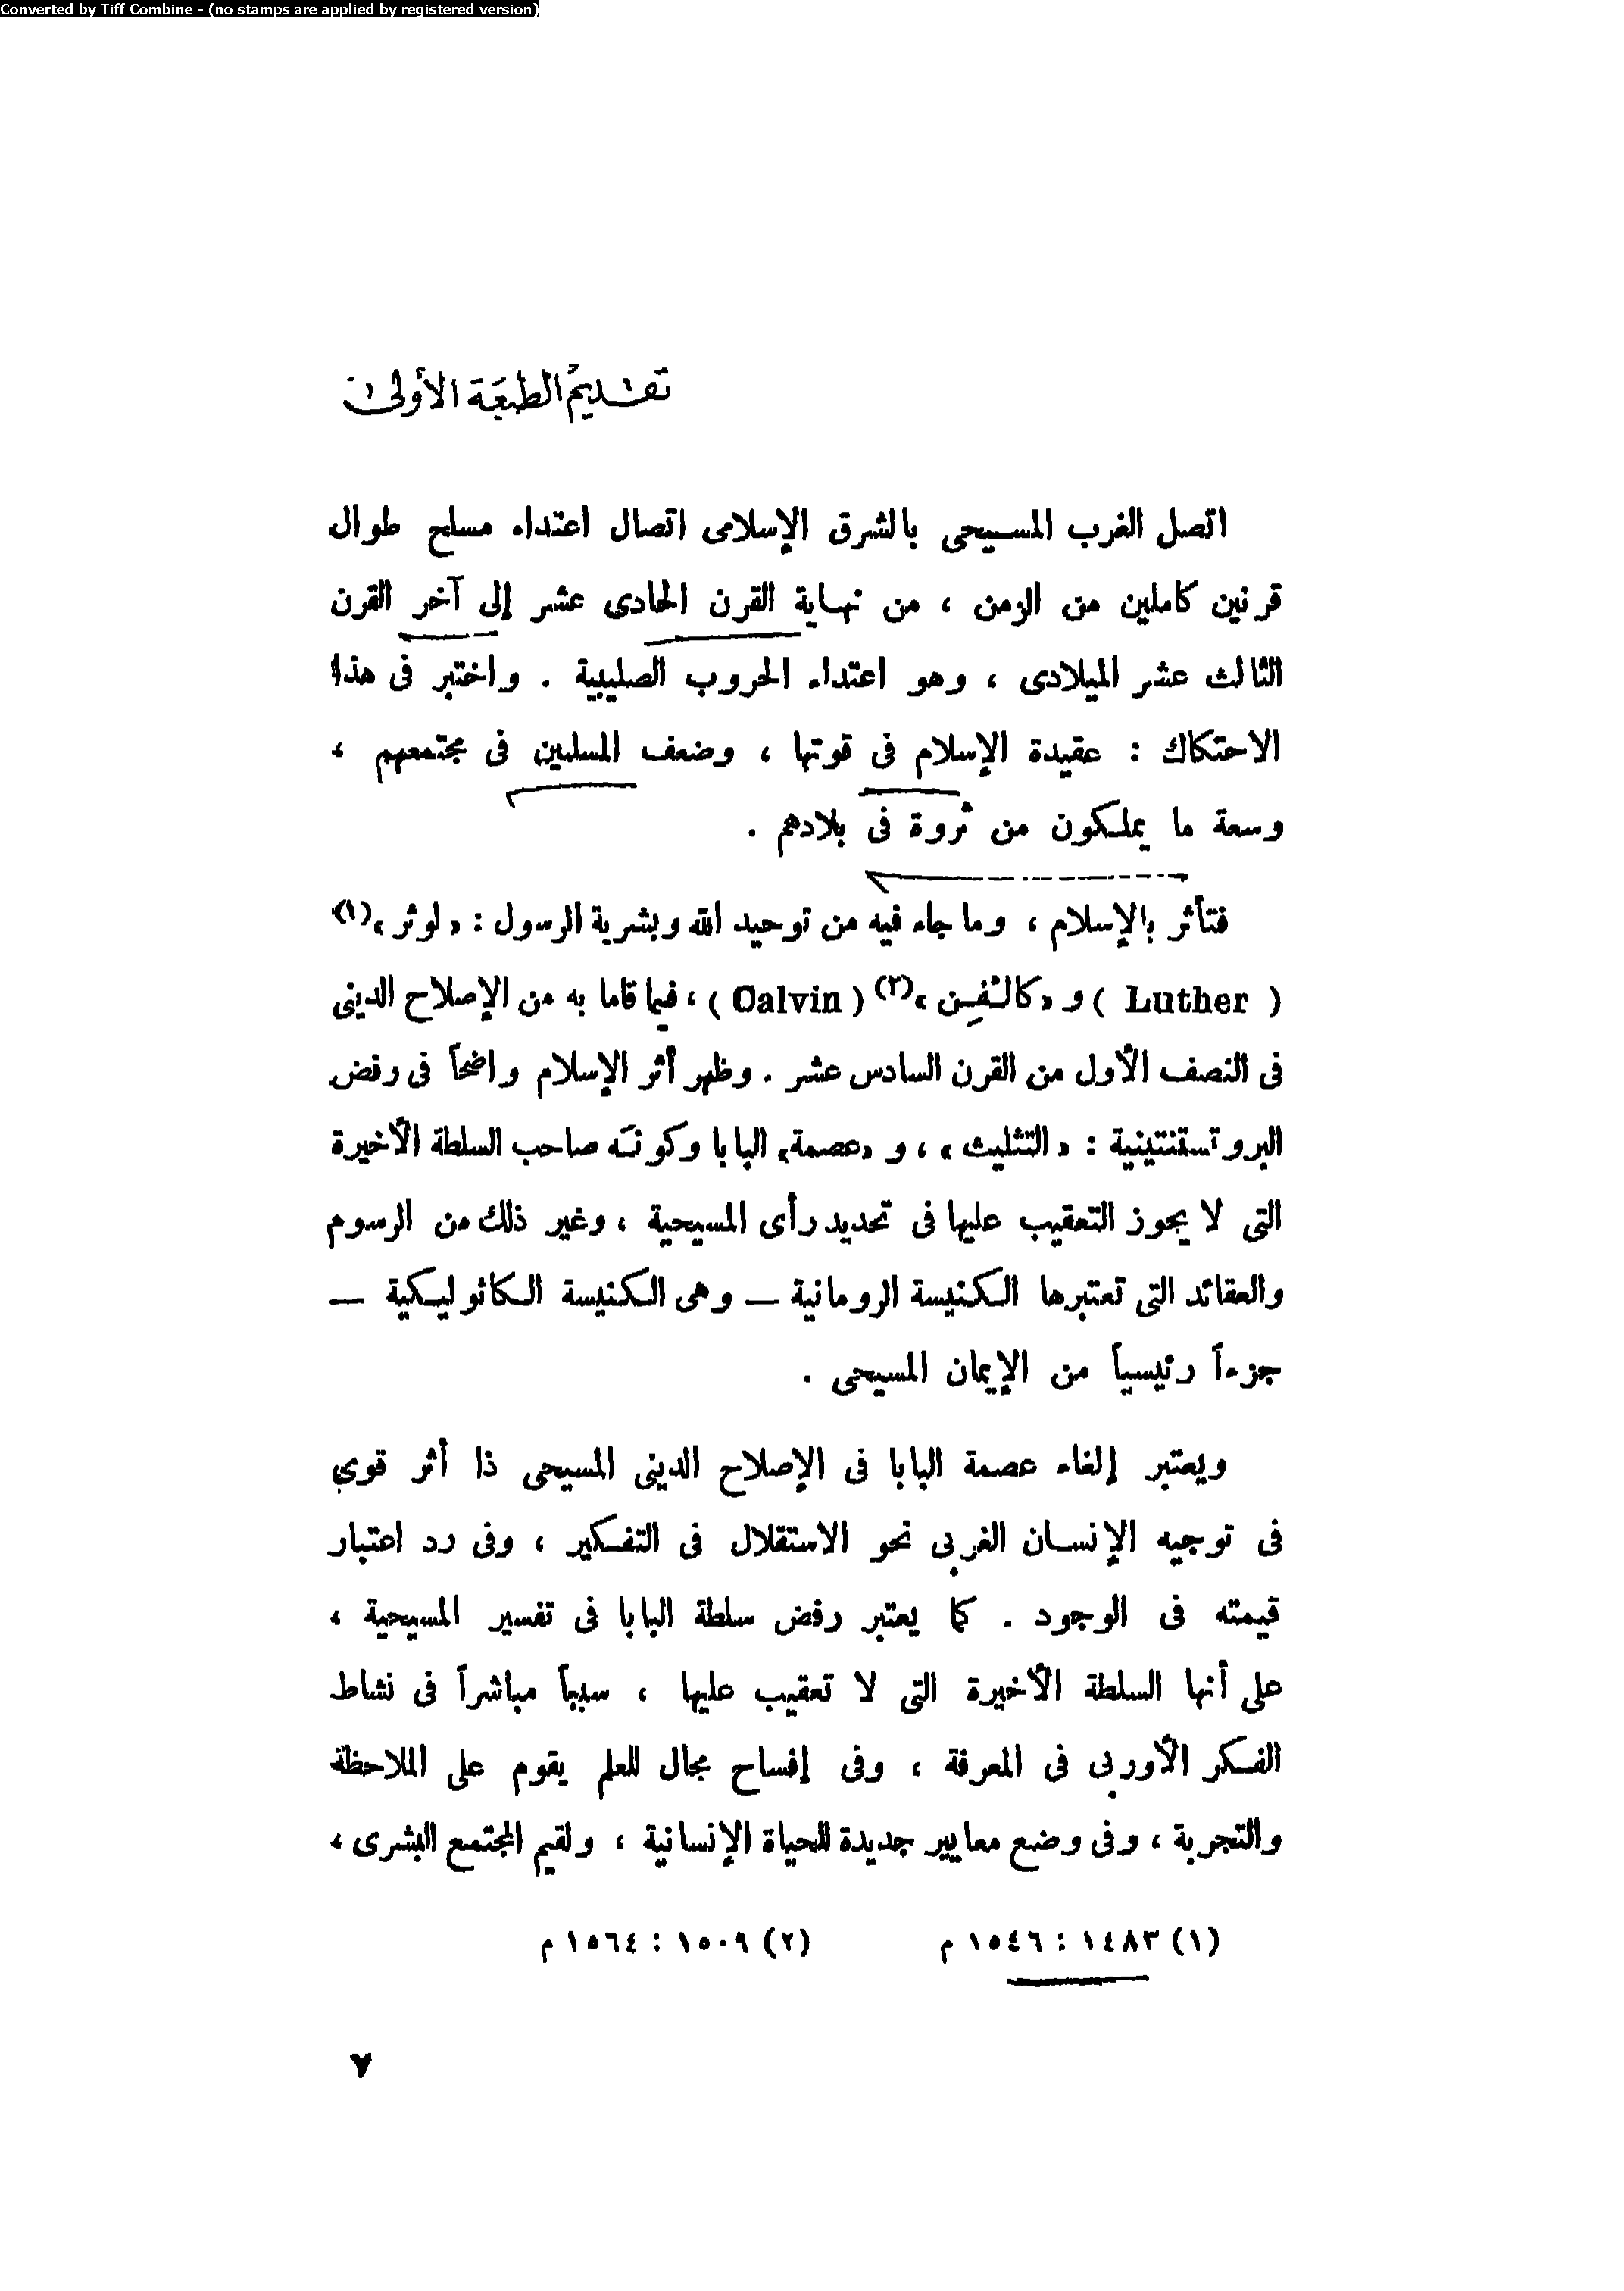 Converted by Tiff Combine - (no stamps are applied by registered version)
تقديم الطبعة الأولى
اتصل الغرب المسيحى بالشرق الإسلامى اتصال اعتداء مسلح طوال
قرنين كاملين من الزمن ، من نهاية القرن الحادى عشر إلى آخر القرن
الثالث عشر الميلادى ، وهو اعتداء الحروب الصليبية . واختبر فى هذا
الاحتكاك : عقيدة الإسلام فى قوتها ، وضعف المسلمين فى مجتمعهم ،
وسعة ما يملكون من ثروة فى بلادهم .
فتأثر بالإسلام ، وما جاء فيه من توحيد الله وبشرية الرسول : «لوثر»(١)
( Luther ) و «كالْفِن»(٢) ( Calvin ) ، فيما قاما به من الإصلاح الدينى
فى النصف الأول من القرن السادس عشر . وظهر أثر الإسلام واضحاً فى رفض
البروتستنتينية : «التثليث» ، و «عصمة» البابا وكونه صاحب السلطة الأخيرة
التى لا يجوز التعقيب عليها فى تحديد رأى المسيحية ، وغير ذلك من الرسوم
والعقائد التى تعتبرها الكنيسة الرومانية — وهى الكنيسة الكاثوليكية —
جزءاً رئيسياً من الإيمان المسيحى .
ويعتبر إلغاء عصمة البابا فى الإصلاح الدينى المسيحى ذا أثر قوى
فى توجيه الإنسان الغربى نحو الاستقلال فى التفكير ، وفى رد اعتبار
قيمته فى الوجود . كما يعتبر رفض سلطة البابا فى تفسير المسيحية ،
على أنها السلطة الأخيرة التى لا تعقيب عليها ، سبباً مباشراً فى نشاط
الفكر الأوربى فى المعرفة ، وفى إفساح مجال للعلم يقوم على الملاحظة
والتجربة ، وفى وضع معايير جديدة للحياة الإنسانية ، ولقيم المجتمع البشرى ،
(١) ١٤٨٣ : ١٥٤٦ م (٢) ١٥٠٩ : ١٥٦٤ م
٧